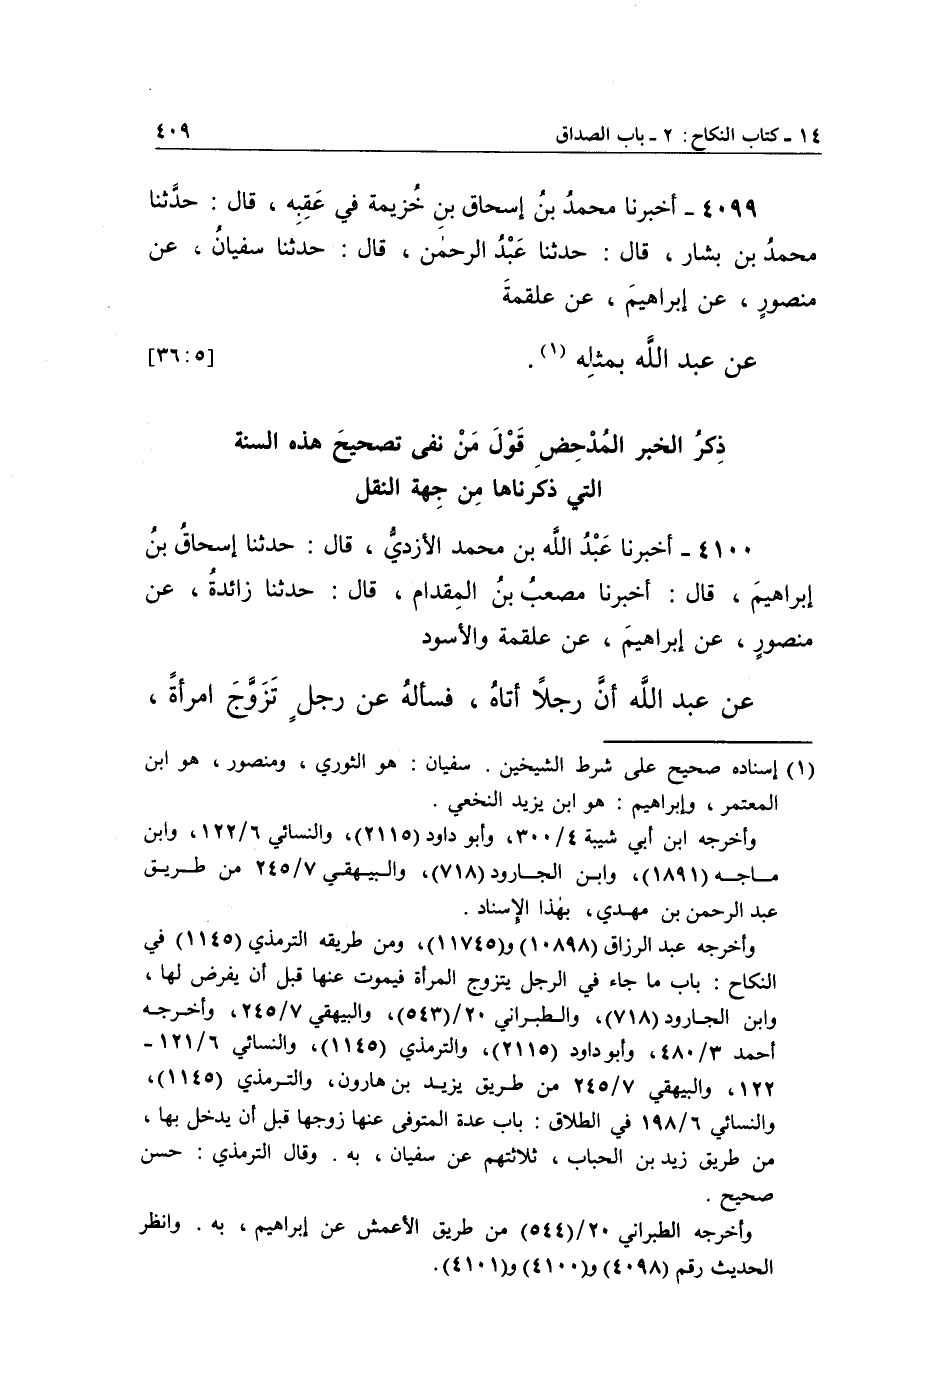 ١٤ ـ كتاب النكاح: ٢ ـ باب الصداق ٤٠٩
٤٠٩٩ ـ أخبرنا محمدُ بنُ إسحاق بنِ خُزيمة في عَقِبِه ، قال : حدَّثنا
محمدُ بن بشار ، قال : حدثنا عَبْدُ الرحمٰن ، قال : حدثنا سفيانُ ، عن
منصورٍ ، عن إبراهيمَ ، عن علقمةَ
عن عبد اللَّه بمثلِه (١) . [٣٦:٥]
ذِكرُ الخبر المُدْحِضِ قَوْلَ مَنْ نفى تصحيحَ هذه السنة
التي ذكرناها مِن جِهة النقل
٤١٠٠ ـ أخبرنا عَبْدُ اللَّه بن محمد الأزديُّ ، قال : حدثنا إسحاقُ بنُ
إبراهيمَ ، قال : أخبرنا مصعبُ بنُ المِقدام ، قال : حدثنا زائدةُ ، عن
منصورٍ ، عن إبراهيمَ ، عن علقمة والأسود
عن عبد اللَّه أنَّ رجلاً أتاهُ ، فسألهُ عن رجلٍ تَزَوَّجَ امرأةً ،
(١) إسناده صحيح على شرط الشيخين . سفيان : هو الثوري ، ومنصور ، هو ابن
المعتمر ، وإبراهيم : هو ابن يزيد النخعي .
وأخرجه ابن أبي شيبة ٣٠٠/٤، وأبو داود (٢١١٥)، والنسائي ١٢٢/٦، وابن
ماجه (١٨٩١)، وابن الجارود (٧١٨)، والبيهقي ٢٤٥/٧ من طريق
عبد الرحمن بن مهدي، بهٰذا الإسناد .
وأخرجه عبد الرزاق (١٠٨٩٨) و(١١٧٤٥)، ومن طريقه الترمذي (١١٤٥) في
النكاح : باب ما جاء في الرجل يتزوج المرأة فيموت عنها قبل أن يفرض لها ،
وابن الجارود (٧١٨)، والطبراني ٢٠/(٥٤٣)، والبيهقي ٢٤٥/٧، وأخرجه
أحمد ٤٨٠/٣، وأبو داود (٢١١٥)، والترمذي (١١٤٥)، والنسائي ١٢١/٦ ـ
١٢٢، والبيهقي ٢٤٥/٧ من طريق يزيد بن هارون، والترمذي (١١٤٥)،
والنسائي ١٩٨/٦ في الطلاق : باب عدة المتوفى عنها زوجها قبل أن يدخل بها ،
من طريق زيد بن الحباب ، ثلاثتهم عن سفيان ، به . وقال الترمذي : حسن
صحيح .
وأخرجه الطبراني ٢٠/(٥٤٤) من طريق الأعمش عن إبراهيم ، به . وانظر
الحديث رقم (٤٠٩٨) و(٤١٠٠) و(٤١٠١).